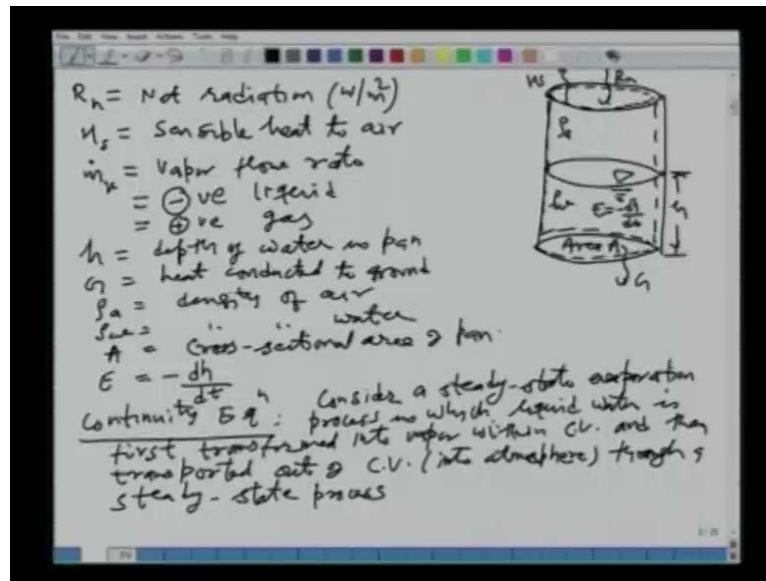 File Edit View Insert Actions Tools Help
Rn = Net radiation (W/m²)
Hs = Sensible heat to air
ṁv = Vapor flow rate
= ⊖ ve liquid
= ⊕ ve gas
h = depth of water in pan
G = heat conducted to ground
ρa = density of air
ρw = " " water
A = Cross-sectional area of pan.
E = - dh/dt
Continuity Eqn: Consider a steady-state evaporation
process in which liquid water is
first transformed into vapor within C.V. and then
transported out of C.V. (into atmosphere) through a
steady-state process
Hs
Rn
ρa
h
ρw
E = -dh/dt
Area A
G